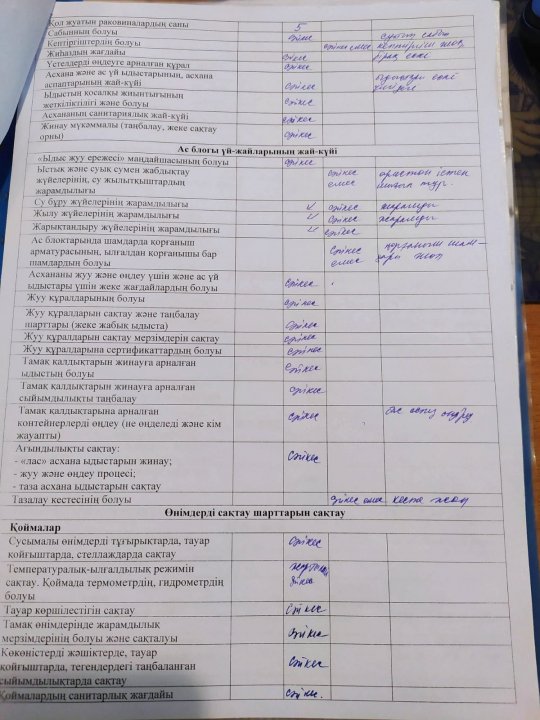 Қол жуатын раковиналардың саны 5
Сабынның болуы сәйкес
Кептіргіштердің болуы сәйкес емес кептіргіш жоқ
Жиһаздың жағдайы сәйкес бірақ ескі
Үстелдерді өңдеуге арналған құрал сәйкес
Асхана және ас үй ыдыстарының, асхана
аспаптарының жай-күйі ыдыстары ескі
Ыдыстың қосалқы жиынтығының
жеткіліктілігі және болуы сәйкес
Асхананың санитариялық жай-күйі сәйкес
Жинау мүкәммалы (таңбалау, жеке сақтау
орны) сәйкес
Ас блогы үй-жайларының жай-күйі
«Ыдыс жуу ережесі» маңдайшасының болуы сәйкес
Ыстық және суық сумен жабдықтау сәйкес аристон істен
жүйелерінің, су жылытқыштардың емес шығып тұр.
жарамдылығы
Су бұру жүйелерінің жарамдылығы сәйкес жарамды
Жылу жүйелерінің жарамдылығы сәйкес жарамды
Жарықтандыру жүйелерінің жарамдылығы сәйкес
Ас блоктарында шамдарда қорғаныш сәйкес қорғаныш шам-
арматурасының, ылғалдан қорғанышы бар емес дары жоқ
шамдардың болуы
Асхананы жуу және өңдеу үшін және ас үй
ыдыстары үшін жеке жағдайлардың болуы сәйкес
Жуу құралдарының болуы сәйкес
Жуу құралдарын сақтау және таңбалау
шарттары (жеке жабық ыдыста) сәйкес
Жуу құралдарын сақтау мерзімдерін сақтау сәйкес
Жуу құралдарына сертификаттардың болуы сәйкес
Тамақ қалдықтарын жинауға арналған
ыдыстың болуы сәйкес
Тамақ қалдықтарын жинауға арналған
сыйымдылықты таңбалау сәйкес
Тамақ қалдықтарына арналған
контейнерлерді өңдеу (не өңделеді және кім сәйкес
жауапты)
Ағындылықты сақтау:
- «лас» асхана ыдыстарын жинау; сәйкес
- жуу және өңдеу процесі;
- таза асхана ыдыстарын сақтау
Тазалау кестесінің болуы сәйкес емес кесте жоқ
Өнімдерді сақтау шарттарын сақтау
Қоймалар
Сусымалы өнімдерді тұғырықтарда, тауар сәйкес
қойғыштарда, стеллаждарда сақтау
Температуралық-ылғалдылық режимін
сақтау. Қоймада термометрдің, гидрометрдің сәйкес
болуы
Тауар көршілестігін сақтау сәйкес
Тамақ өнімдерінде жарамдылық
мерзімдерінің болуы және сақталуы сәйкес
Көкөністерді жәшіктерде, тауар
қойғыштарда, тегендердегі таңбаланған сәйкес
сыйымдылықтарда сақтау
Қоймалардың санитарлық жағдайы сәйкес.